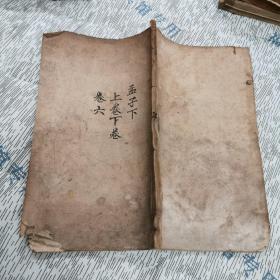 孟子下
上卷下卷
卷六